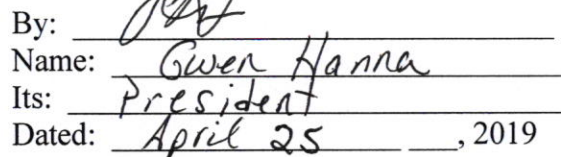 By:
Name: Gwen Hanna
Its: President
Dated: April 25, 2019